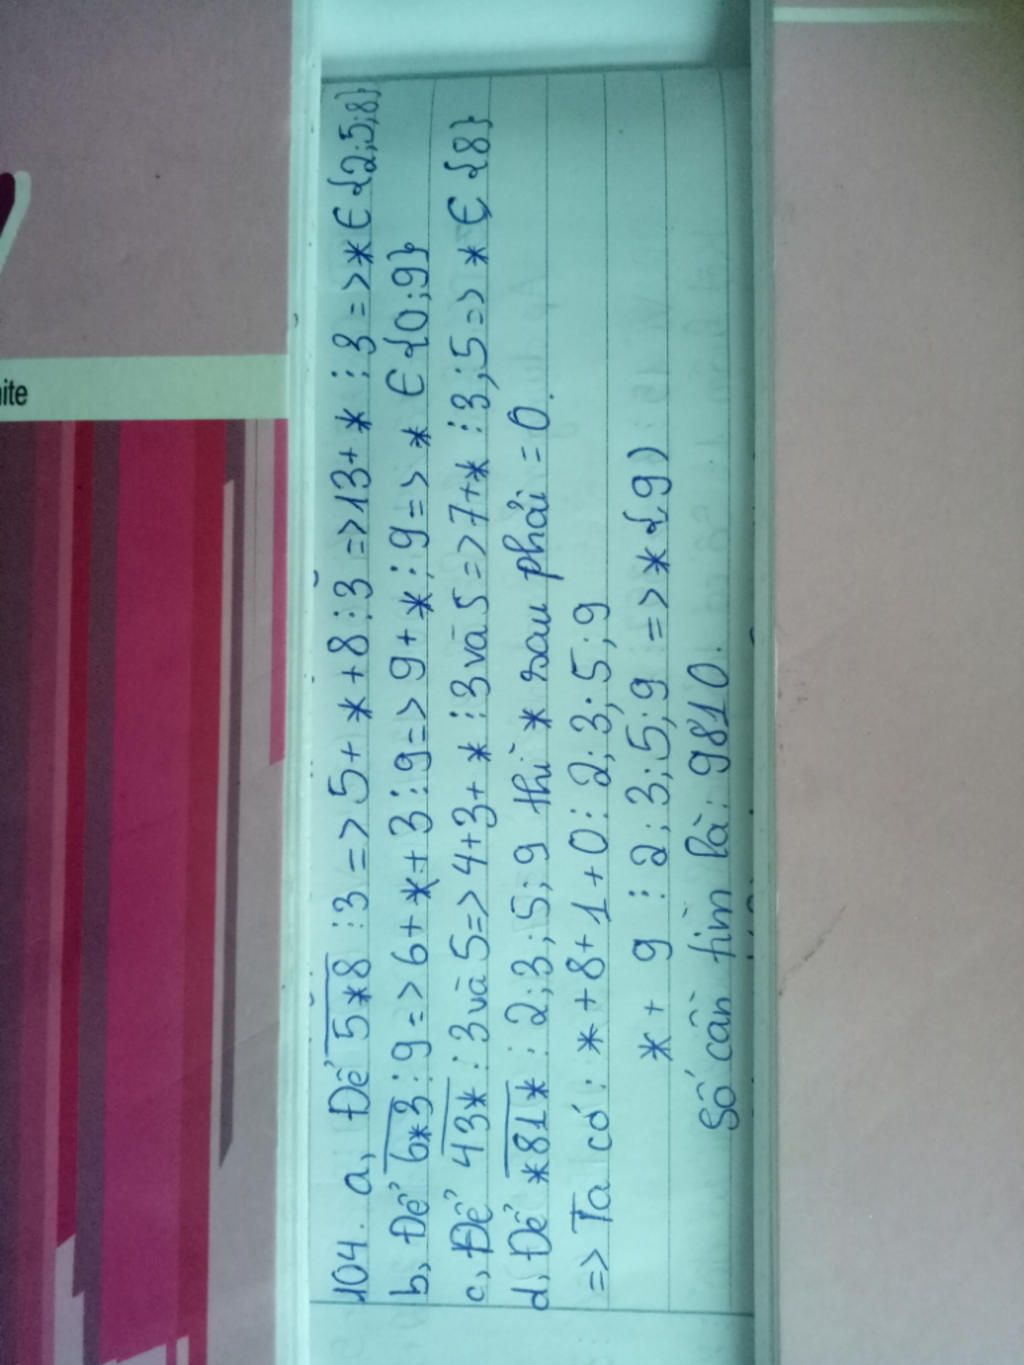 ite
104. a, Để 5*8 ⋮ 3 => 5+ * +8 ⋮ 3 => 13+ * ⋮ 3 => * ∈ {2;5;8}
b, Để 6*3 ⋮ 9 => 6+ * + 3 ⋮ 9 => 9+ * ⋮ 9 => * ∈ {0;9}
c, Để 43* ⋮ 3 và 5 => 4+3+ * ⋮ 3 và 5 => 7+* ⋮ 3;5 => * ∈ {8}
d, Để *81* ⋮ 2;3;5;9 thì * sau phải = 0.
=> Ta có : * +8+1+0 ⋮ 2;3;5;9
* + 9 ⋮ 2;3;5;9 => * {9)
Số cần tìm là : 9810.